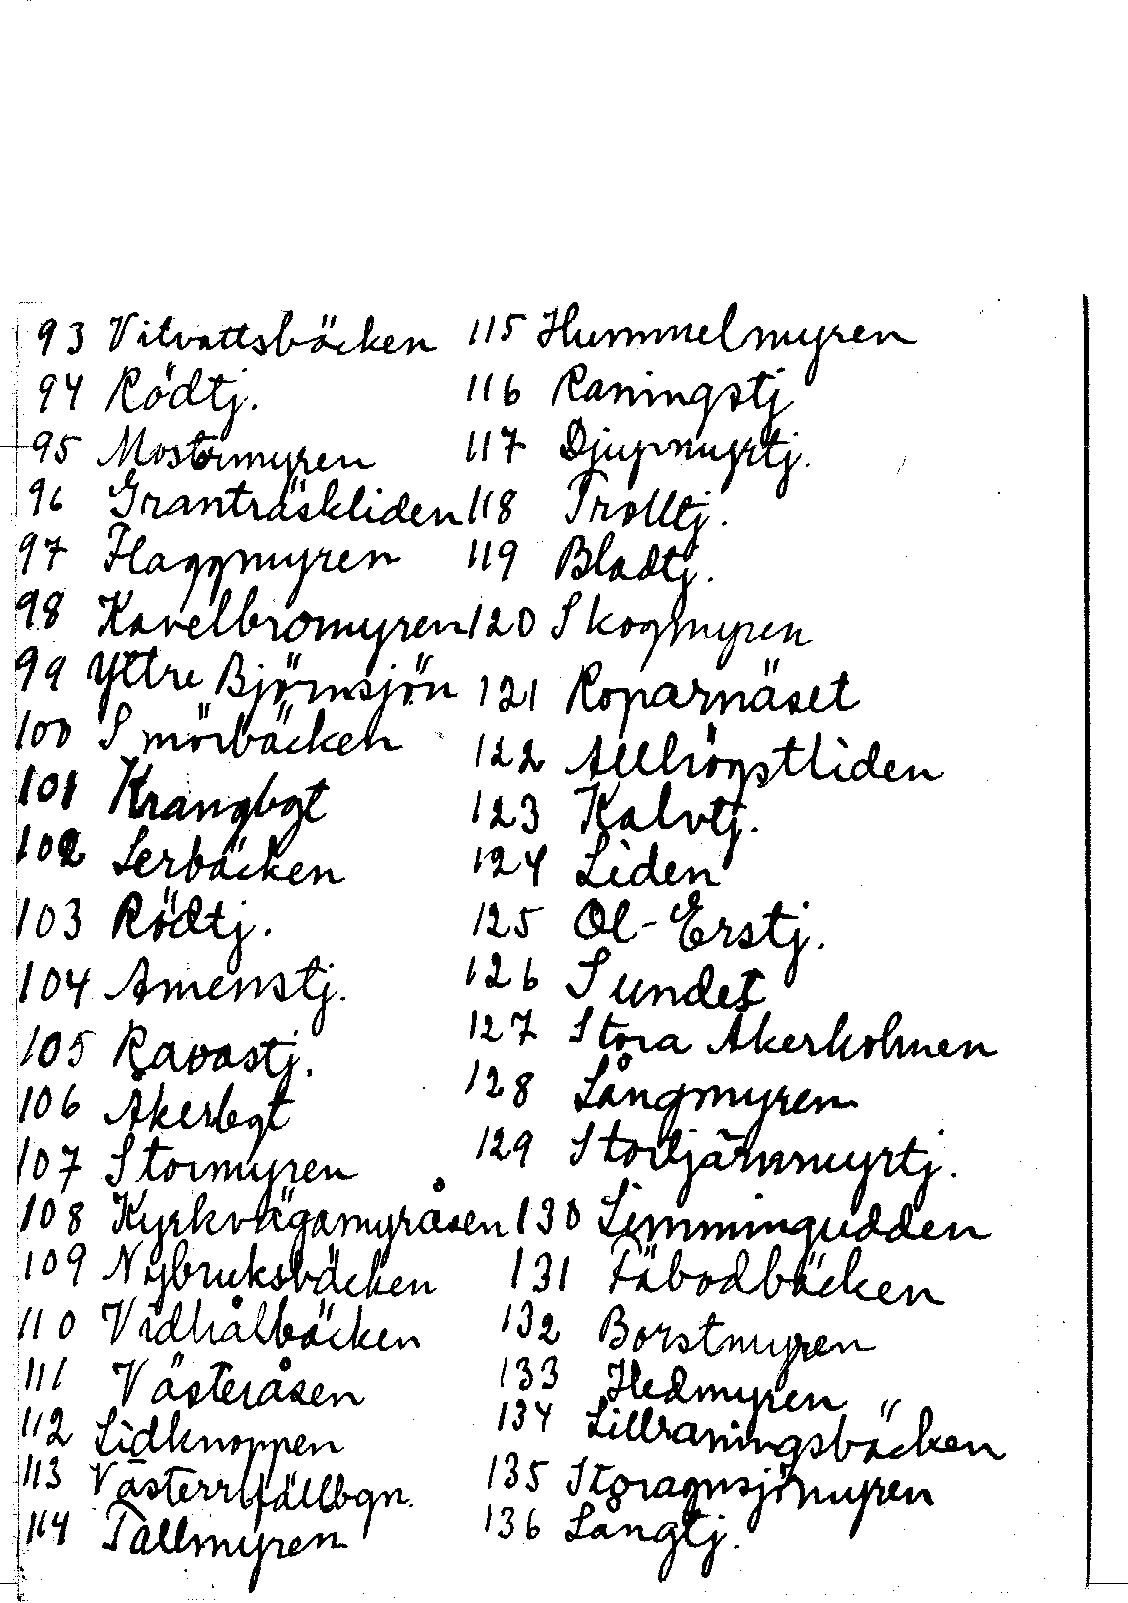 93 Vitvattsbäcken
94 Rödtj.
95 Mostormyren
96 Granträskliden
97 Flaggmyren
98 Kavelbromyren
99 Yttre Björnsjön
100 Smörbäcken
101 Krangbgt
102 Lerbäcken
103 Rödtj.
104 Amenstj.
105 Ravastj.
106 Åkerbgt
107 Stormyren
108 Kyrkvägamyråsen
109 Nybruksbäcken
110 Vidhålbäcken
111 Västeråsen
112 Lidknoppen
113
114 Tallmyren
115 Hummelmyren
116 Raningstj
117 Djupmyrtj.
118 Trolltj.
119 Bladtj.
120 Skogmyren
121 Roparnäset
122 Allhögstliden
123 Kalvtj.
124 Liden
125 Ol-Erstj.
126 Sundet
127 Stora Åkerholmen
128 Långmyren
129 Stortjärnmyrtj.
130 Limmingudden
131 Fäbodbäcken
132 Borstmyren
133 Hedmyren
134 Lillraningsbäcken
135 Storagnsjömyren
136 Långtj.